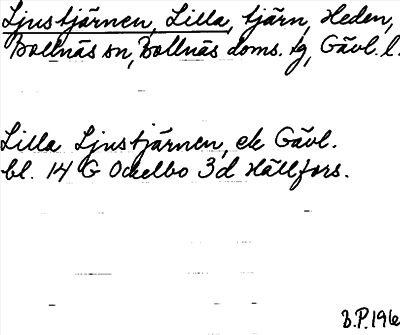 Ljustjärnen, Lilla, tjärn, Heden,
Bollnäs sn, Bollnäs doms. tg, Gävl. l.
Lilla Ljustjärnen, ek Gävl.
bl. 14 G Ockelbo 3d Hällfors.
B.P.196